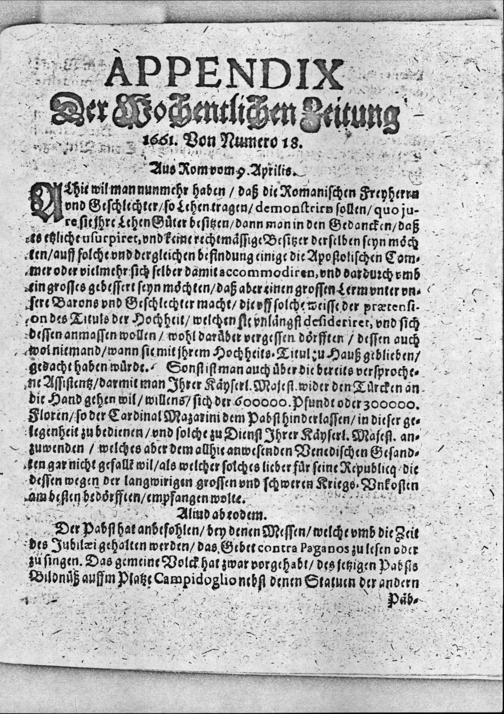 APPENDIX
Der Wochentlichen Zeitung
1661. Von Numero 18.
Aus Rom vom 9. Aprilis.
Alhie wil man nunmehr haben / daß die Romanischen Freyherrn
und Geschlechter / so Lehen tragen / demonstrirn sollen / quo ju-
re sie ihre Lehen Güter besitzen / dann man in den Gedancken / daß
es etzliche usurpiret, und keine rechtmässige Besitzer derselben seyn möch
ten / auff solche und dergleichen befindung einige die Apostolischen Cam-
mer oder vielmehr sich selber damit accommodiren, und dardurch umb
ein grosses gebessert seyn möchten / daß aber einen grossen Lerm unter un-
sere Barons und Geschlechter macht / die uff solche weisse der prætensi-
on des Tituls der Hochheit / welchen sie vnlängst desideriret, und sich
dessen anmassen wollen / wohl darüber vergessen dörfften / dessen auch
wol niemand / wann sie mit jhrem Hochheits-Titul zu Hauß geblieben /
gedacht haben würde. Sonst ist man auch über die bereits versproche-
ne Assistentz / darmit man Jhrer Käyserl. Majest. wider den Türcken an
die Hand gehen wil / willens / sich der 600000. Pfundt oder 300000.
Floren / so der Cardinal Mazarini dem Pabst hinderlassen / in dieser ge-
legenheit zu bedienen / und solche zu Dienst Jhrer Käyserl. Majest. an-
zuwenden / welches aber dem allhie anwesenden Venedischen Gesand-
ten gar nicht gefallē wil / als welcher solches lieber für seine Republicq die
dessen wegen der langwirigen grossen und schweren Kriegs-Vnkosten
am besten bedörfften / empfangen wolte.
Aliud ab eodem.
Der Pabst hat anbefohlen / bey denen Messen / welche umb die Zeit
des Jubilæi gehalten werden / das Gebet contra Paganos zu lesen oder
zu singen. Das gemeine Volck hat zwar vorgehabt / des jetzigen Pabsts
Bildnüß auffm Platze Campidoglio nebst denen Statuen der andern
Päb-